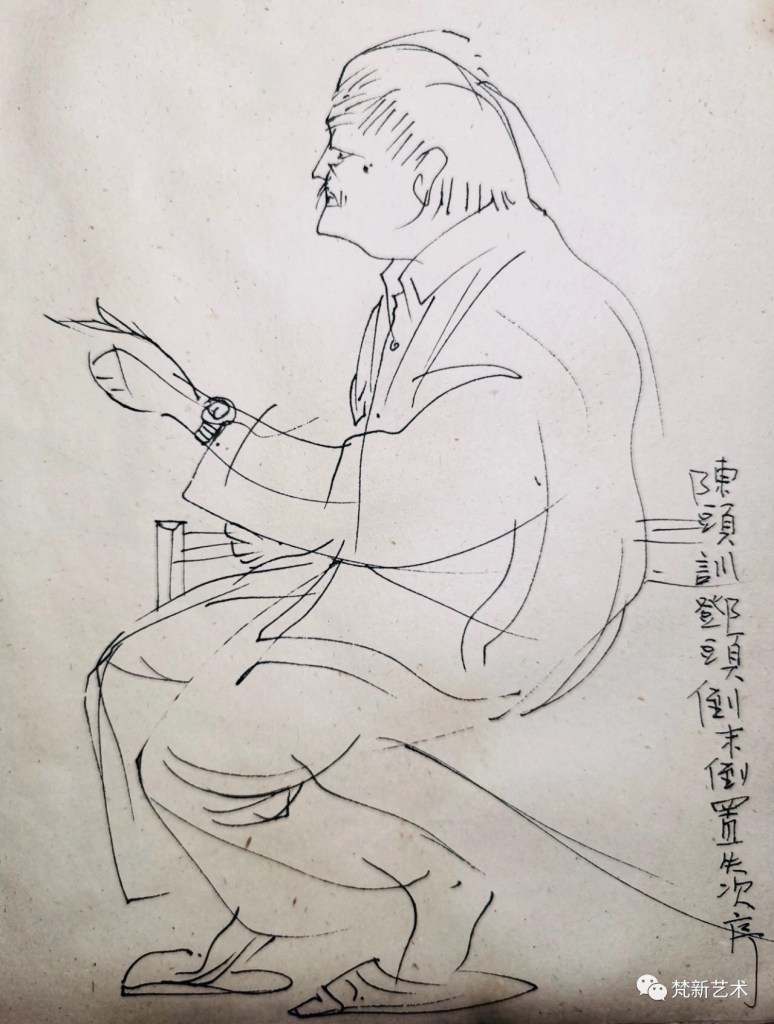 陳頭訓鄧頭倒未倒置失次序
梵新艺术